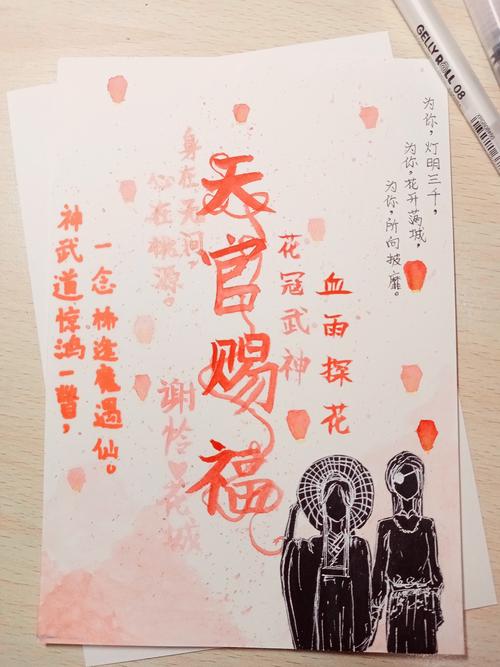 GELLY ROLL 08
为你，灯明三千，
为你，花开满城，
为你，所向披靡。
天官赐福
血雨探花
花冠武神
身在无间，
心在桃源。
谢怜♥花城
神武道惊鸿一瞥，
一念桥逢魔遇仙。